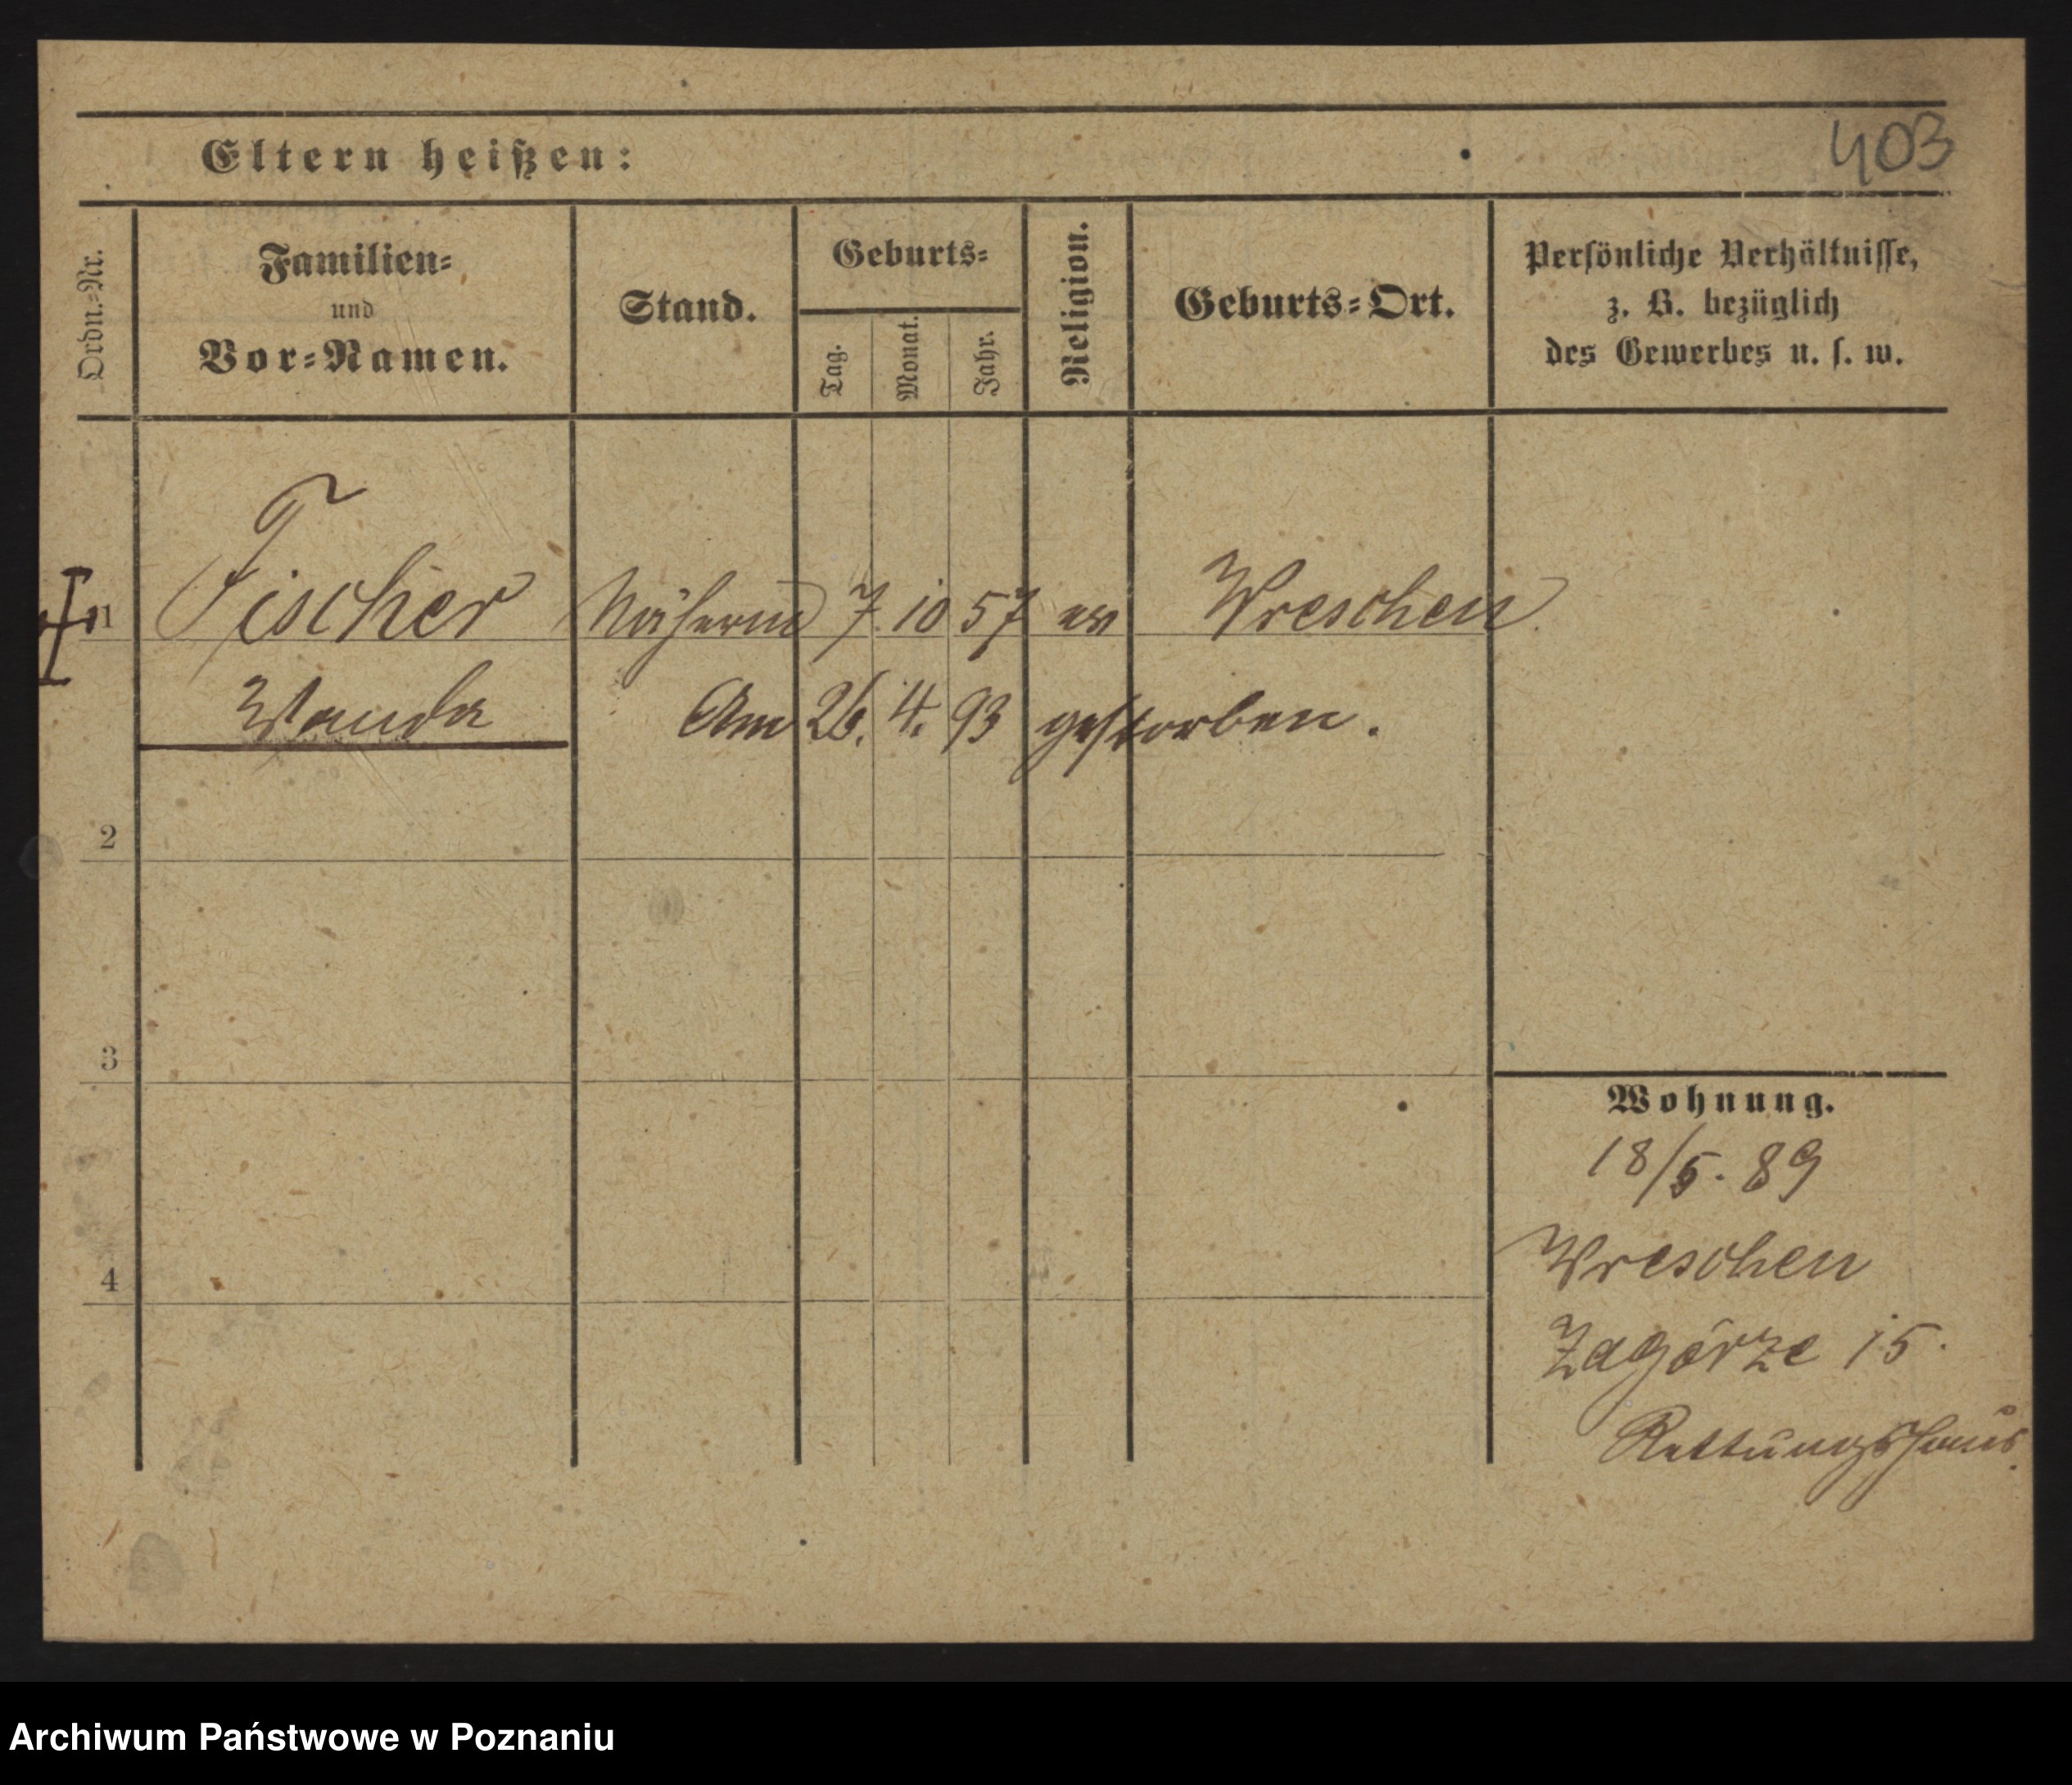 403
Eltern heißen:
Ordn.=Nr.
Familien=
und
Vor=Namen.
Stand.
Geburts=
Tag.
Monat.
Jahr.
Religion.
Geburts=Ort.
Persönliche Verhältnisse,
z. B. bezüglich
des Gewerbes u. s. w.
1 Fischer Näherin 7. 10 57 ev Wreschen
Wanda Am 26. 4. 93 gestorben.
2
3
4
Wohnung.
18/5. 89
Wreschen
Zagórze 15.
Rettungshaus.
Archiwum Państwowe w Poznaniu